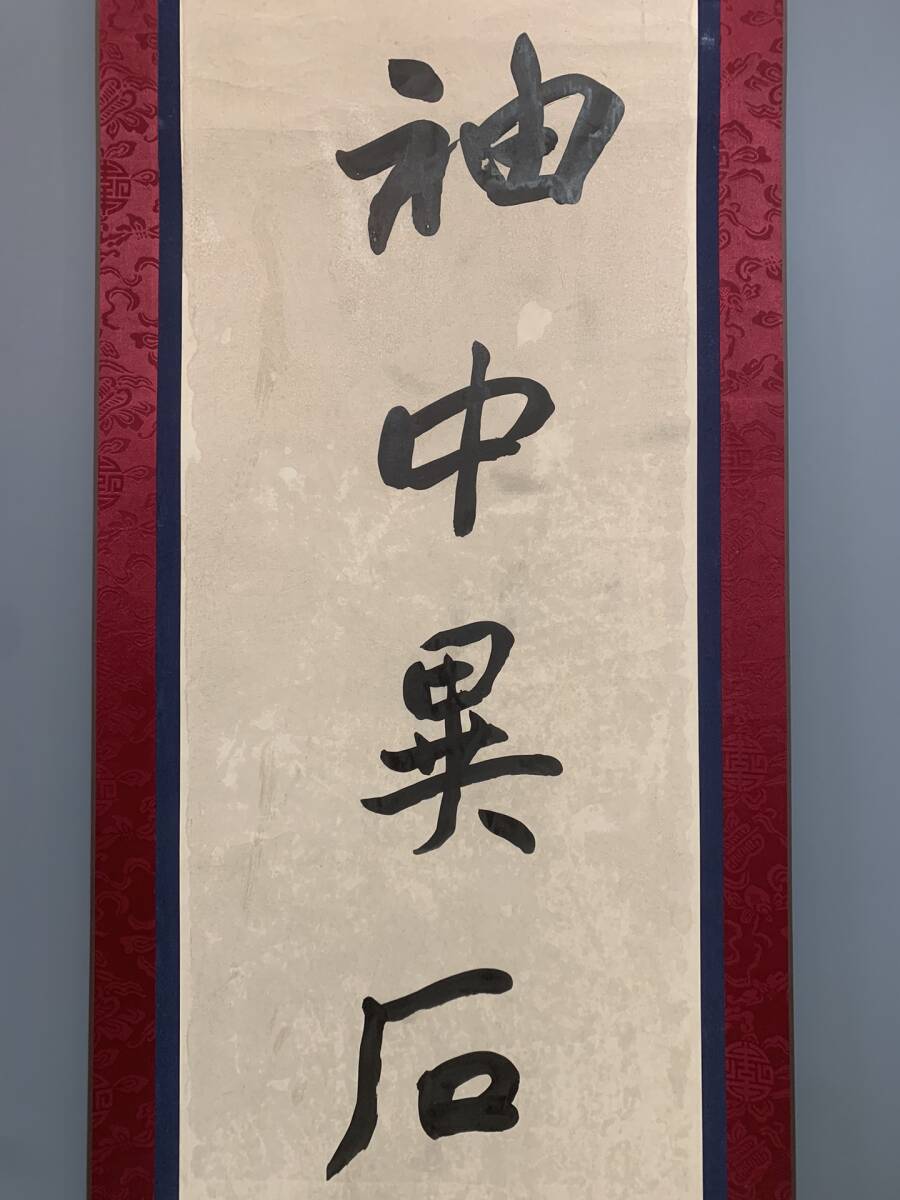 袖中異石